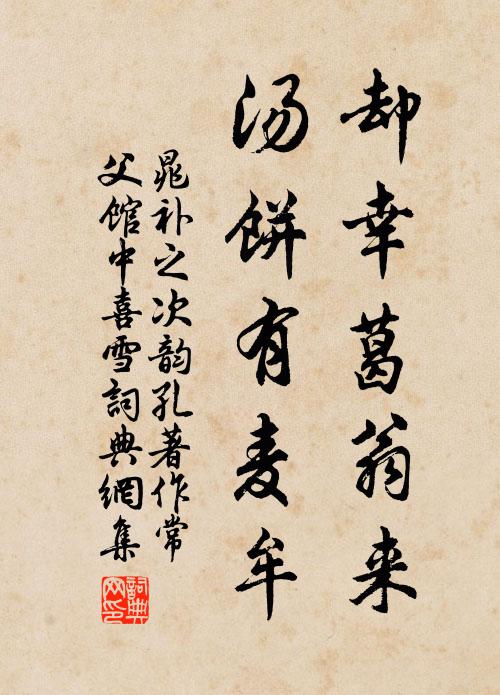 却幸葛翁来
汤餅有麦牟
晁补之次韵孔著作常
父馆中喜雪詞典網集
詞典
网印